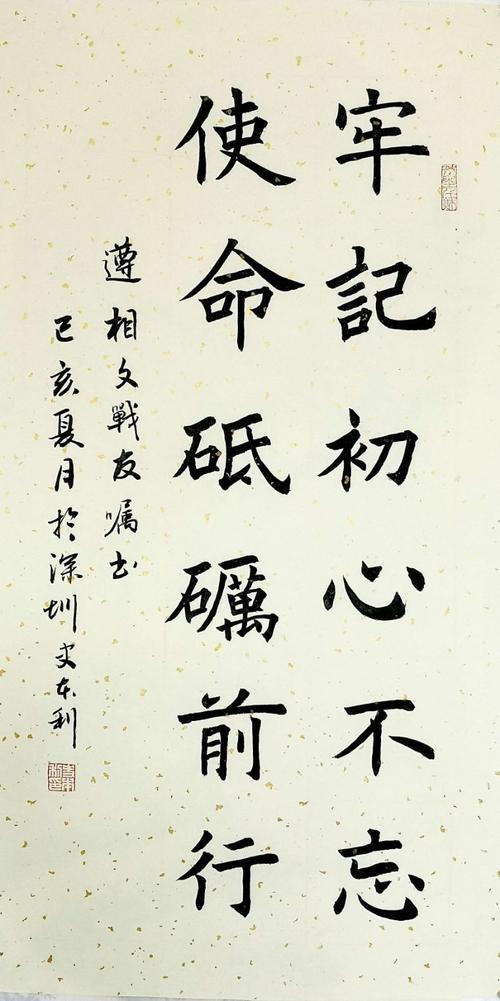 牢記初心不忘
使命砥礪前行
遵相文戰友嘱书
己亥夏月於深圳史本利